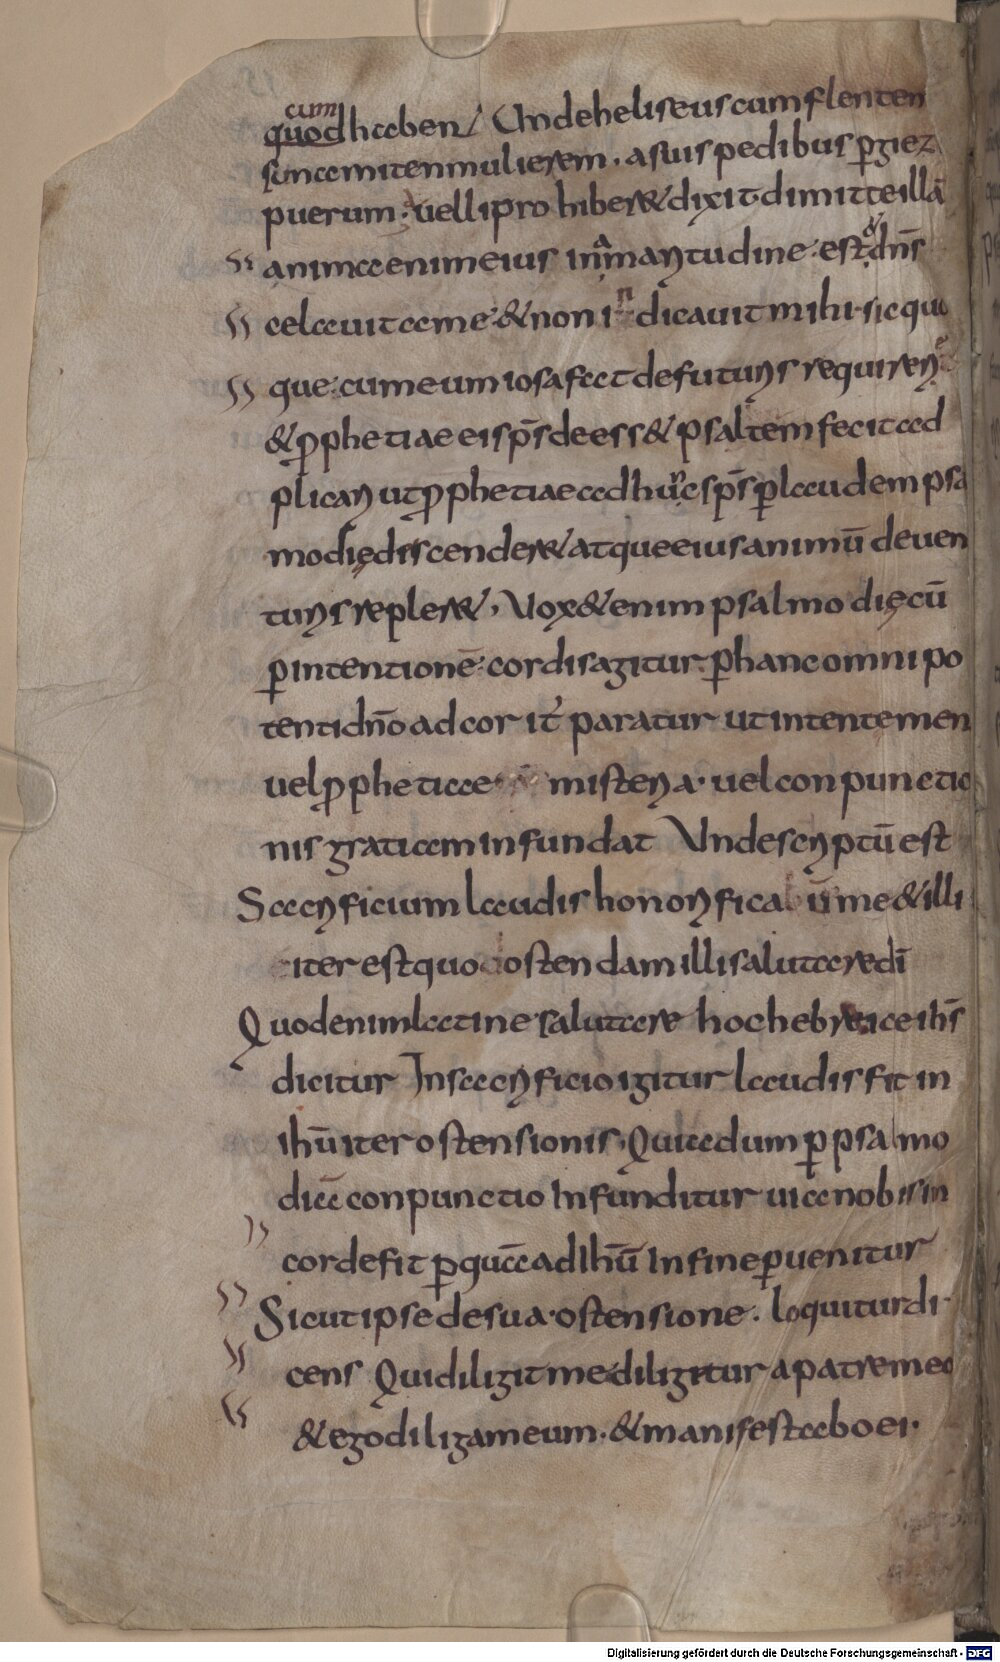 cum
quod haben Unde heliseus cum flenten
sunamiten mulierem. a suis pedibus ꝑgiez
puerum. vellí pro hiber& dixit dimitte illā
anima enim eius in amarytudine. est & dn̄s
celavit a me. & non indicavit mihi. sic quo
que. cum eum iosafat de futurys requirer&
& ꝓphetiae ei sp̄s deess& psaltem fecit ad
plicary ut ꝓphetiae ad hunc sp̄s ꝑ laudem psa
modię discender& atque eius animū de ven
turys repler&, Vox & enim psalmodię cū
ꝑ intentionē cordis agitur. ꝑ hanc omnipo
tenti dn̄o ad cor it̓ paratur ut intente men
vel ꝓpheticae misterya. vel conpunctio
nis gratiam infundat Unde scryptū est
Sacryficium laudis honoryficabūme & illi
iter est quo ostendam illi salutare dī
Quod enim latine salutare hoc hebreice ih̄s
dicitur In sacryficio igitur laudis fit in
ihū iter ostensionis. Quia dum ꝑ psalmo
diā conpunctio Infunditur via nobis in
corde fit ꝑ quā ad Ihū In fine ꝑvenitur
Sicut ipse de sua. ostensione. loquitur di
cens Qui diligit me diligitur a patre meo
& ego diligam eum. & manifestabo ei.
Digitalisierung gefördert durch die Deutsche Forschungsgemeinschaft - DFG